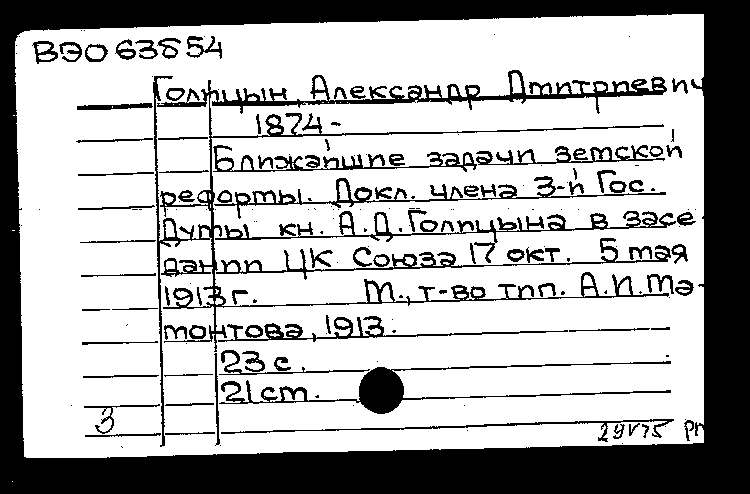 ВЭО 63854
Голицын, Александр Дмитриевич
1874-
Ближайшие задачи земской
реформы. Докл. члена 3-й Гос.
Думы кн. А.Д.Голицына в засе-
дании ЦК Союза 17 окт. 5 мая
1913 г. М., т-во тип. А.И.Ма-
монтова, 1913.
23 с.
21 см.
3
29V75